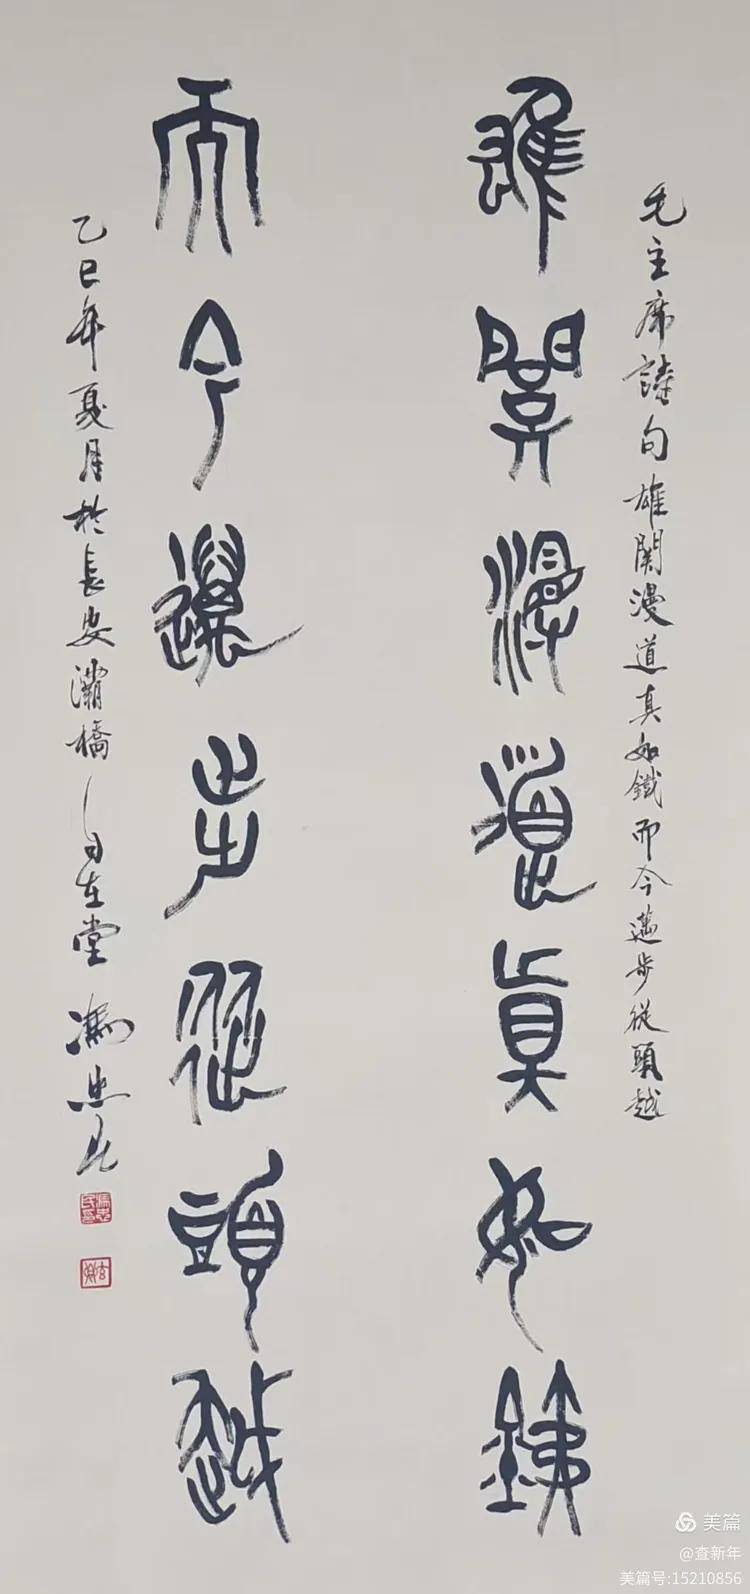 毛主席詩句雄関漫道真如鐵而今邁步從頭越
雄關漫道真如銕
而今邁步從頭越
乙巳年夏月於長安灞橋自在堂馮忠民
馮忠民印
美篇
@查新年
美篇号:15210856